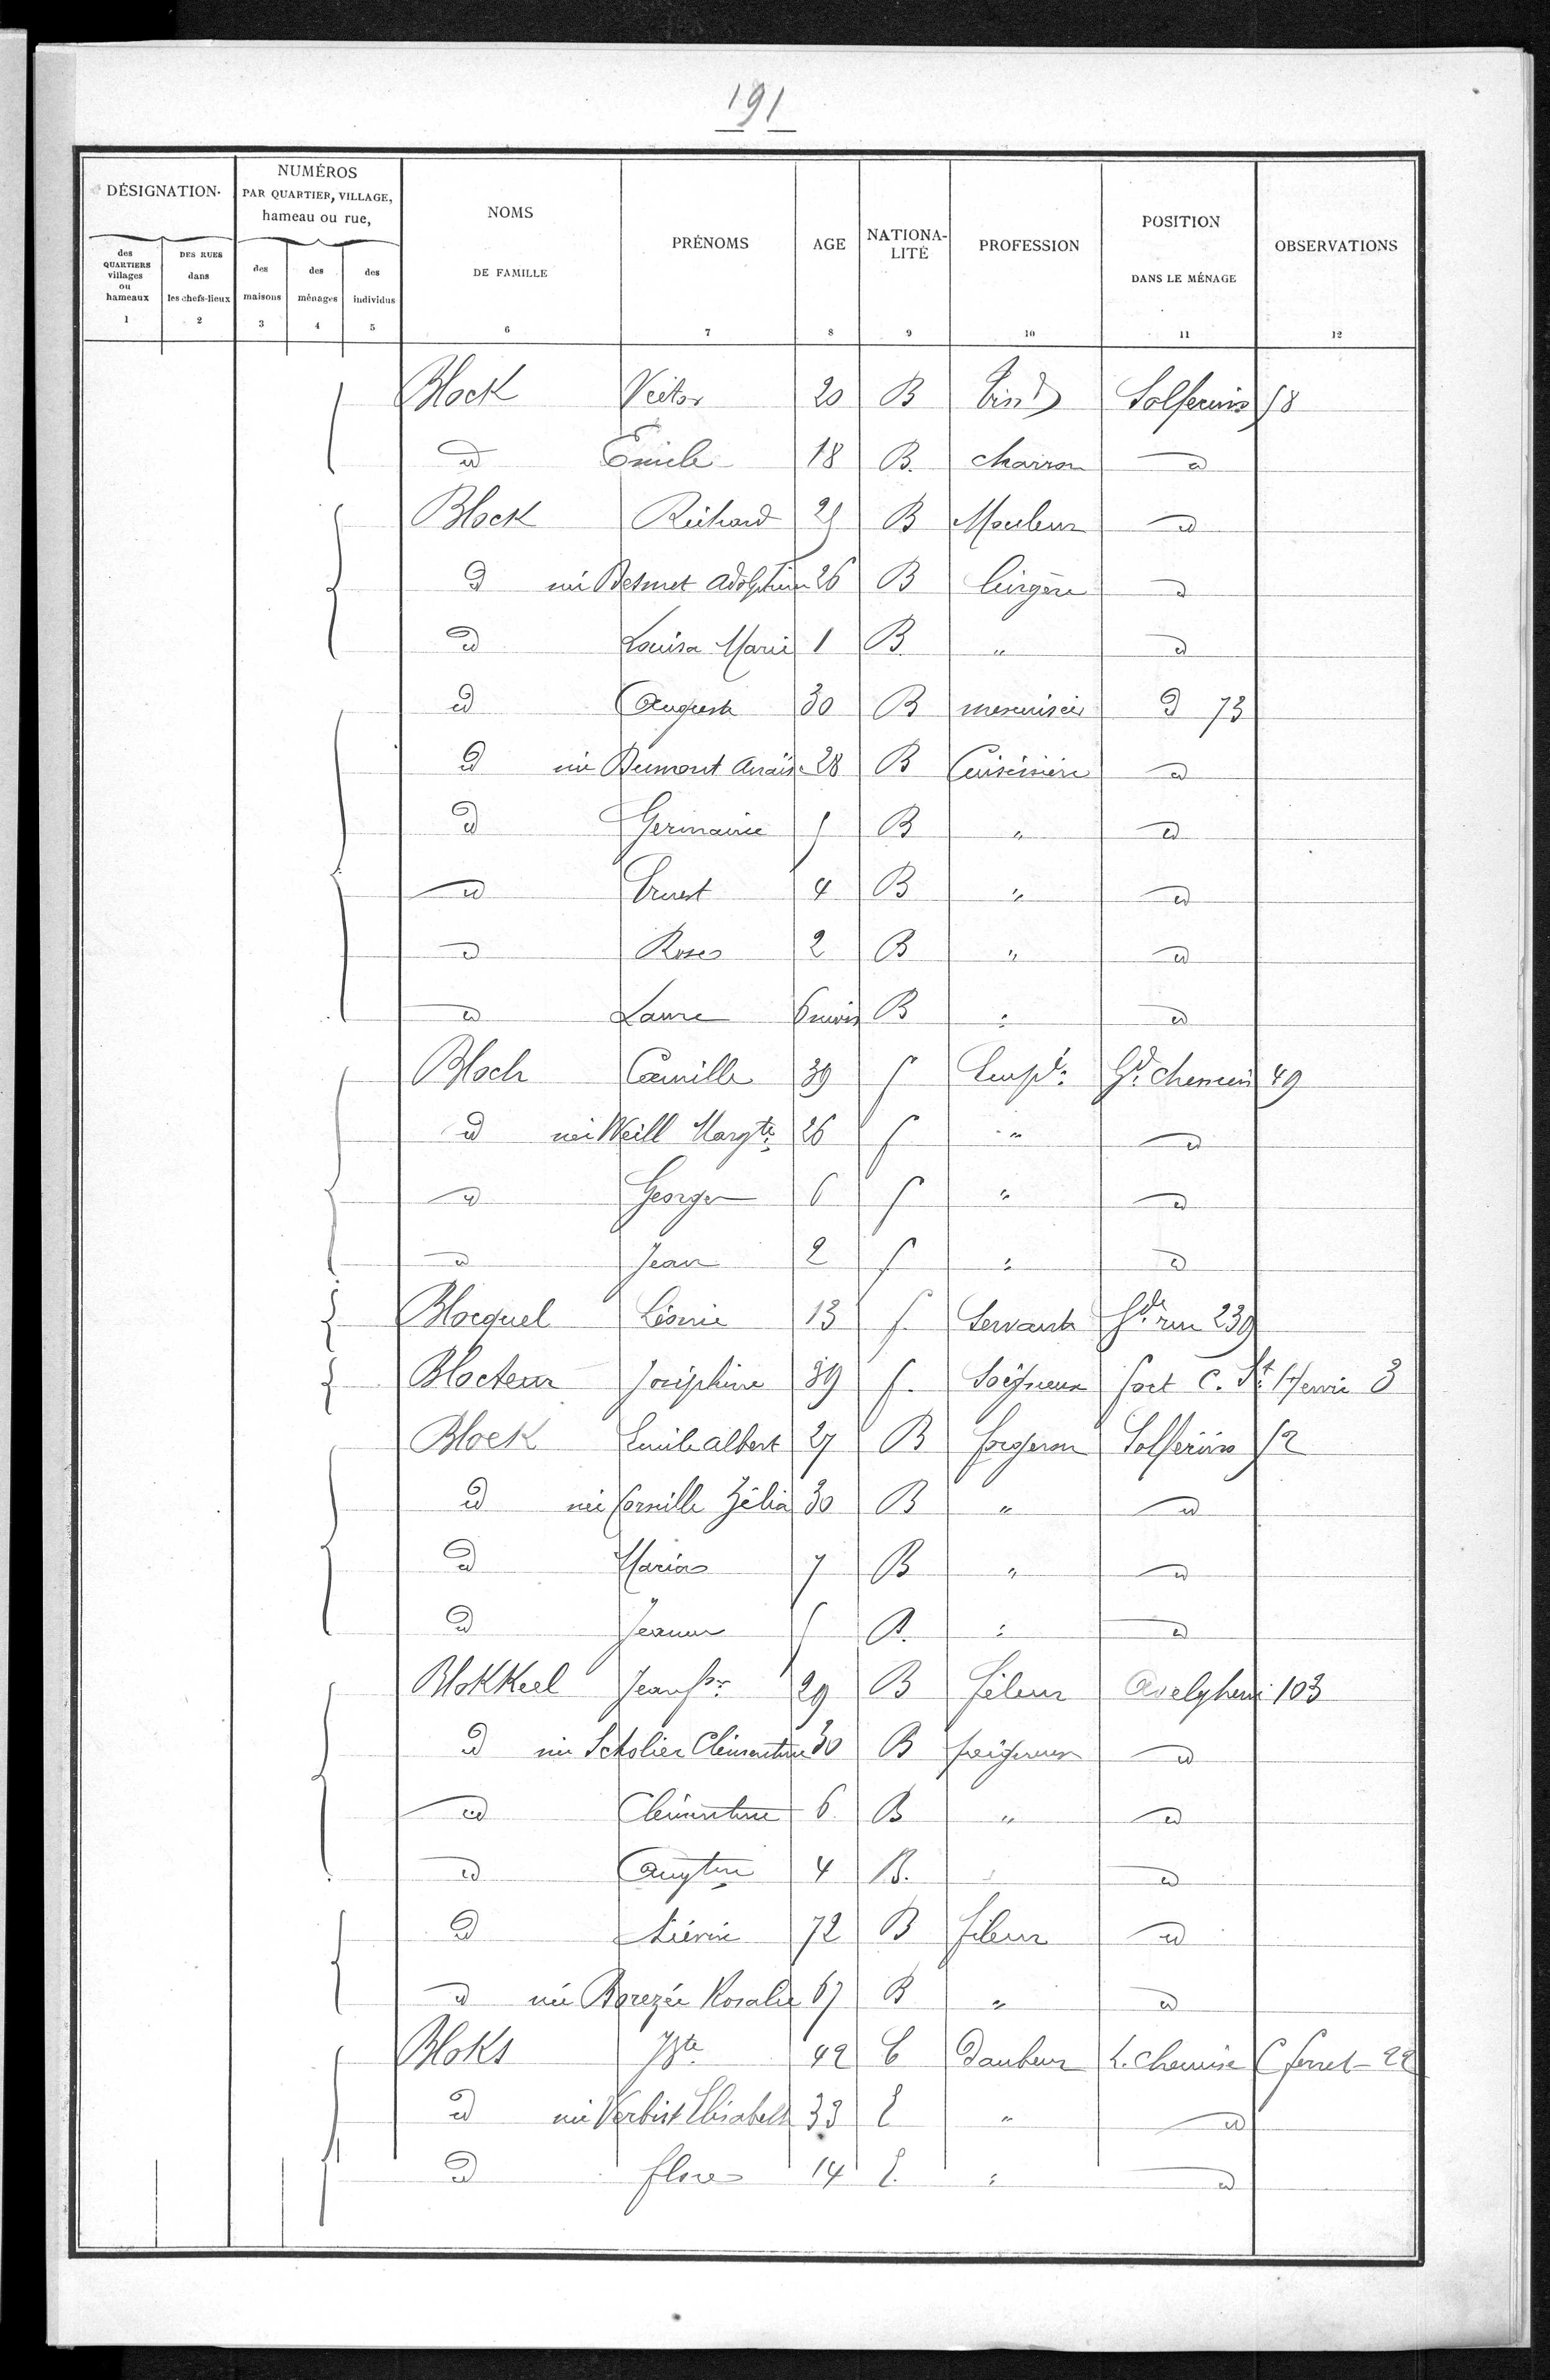 191
DÉSIGNATION
NUMÉROS
PAR QUARTIER, VILLAGE,
hameau ou rue,
des QUARTIERS villages ou hameaux
DES RUES dans les chefs-lieux
des maisons
des ménages
des individus
NOMS DE FAMILLE
PRÉNOMS
AGE
NATIONA-LITÉ
PROFESSION
POSITION DANS LE MÉNAGE
OBSERVATIONS
1 2 3 4 5 6 7 8 9 10 11 12
Block Victor 20 B Solferino 58
id Émile 18 B. charron id
Block Richard 25 B Mouleur id
id née Desmet Adolphine 26 B Lingère id
id Louisa Marie 1 B " id
id Auguste 30 B menuisier id 73
id née Dumont Anaïse 28 B Cuisinière id
id Germaine 5 B " id
id Ernest 4 B " id
id Rose 2 B " id
id Laure 6 mois B " id
Bloch Camille 39 f Empé. Gd. chemin 49
id née Weill Margte 26 f " id
id George 6 f " id
id Jean 2 f " id
Blocquel Léonie 13 f. Servante Gde rue 239
Blocteur Joséphine 39 f. Soigneuse fort C. St. Henri 3
Block Emile albert 27 B forgeron Solférino 52
id née Cornille Zélia 30 B " id
id Maria 7 B " id
id Jeanne 5 B. " id
Blokkeel Jean fs. 29 B fileur Avelghem 103
id née Scholier Clémentine 30 B soigneuse id
id Clémentine 6 B " id
id Augtine 4 B. " id
id Liévin 72 B fileur id
id née Rosalie 67 B " id
Bloks Jte 42 E Daubeur L. chemise C ferret 22
id née Verbist Elisabeth 33 E " id
id flore 14 E. " id